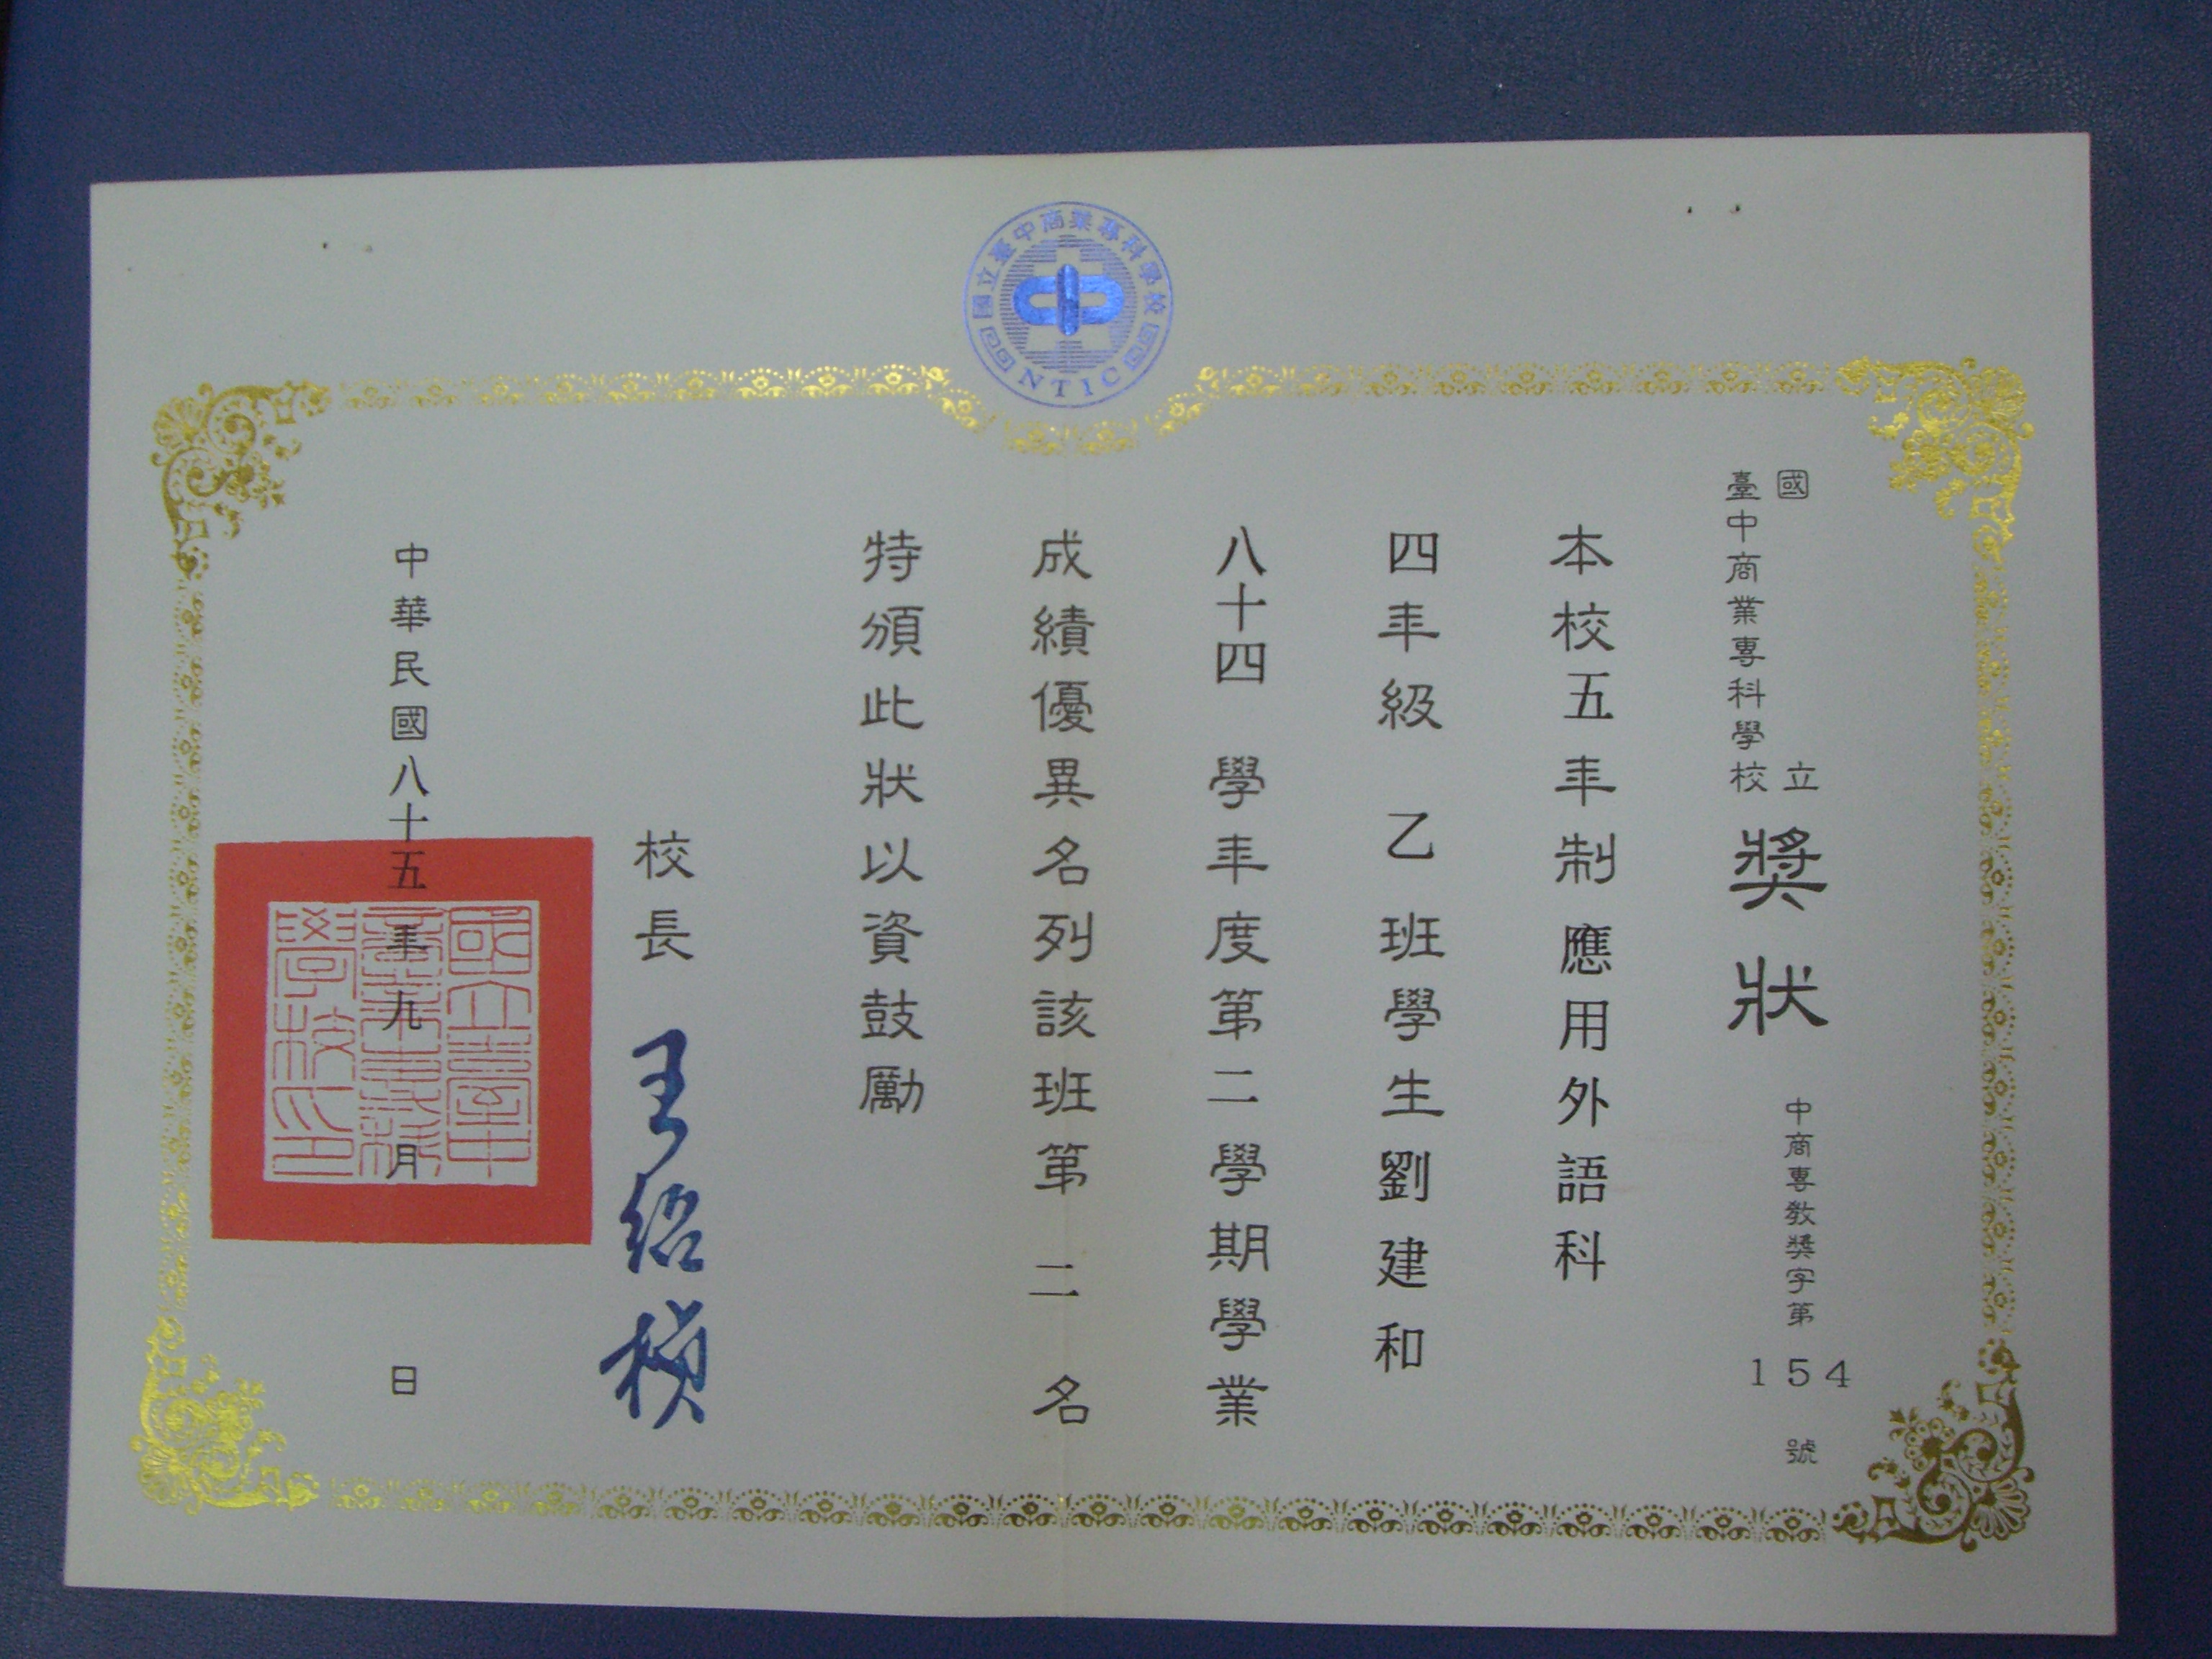 國立臺中商業專科學校
NTIC
國立
臺中商業專科學校
獎狀
中商專教獎字第154號
本校五年制應用外語科
四年級乙班學生劉建和
八十四學年度第二學期學業
成績優異名列該班第二名
特頒此狀以資鼓勵
校長王紹楨
中華民國八十五年九月日
國立臺中
商業專科
學校印